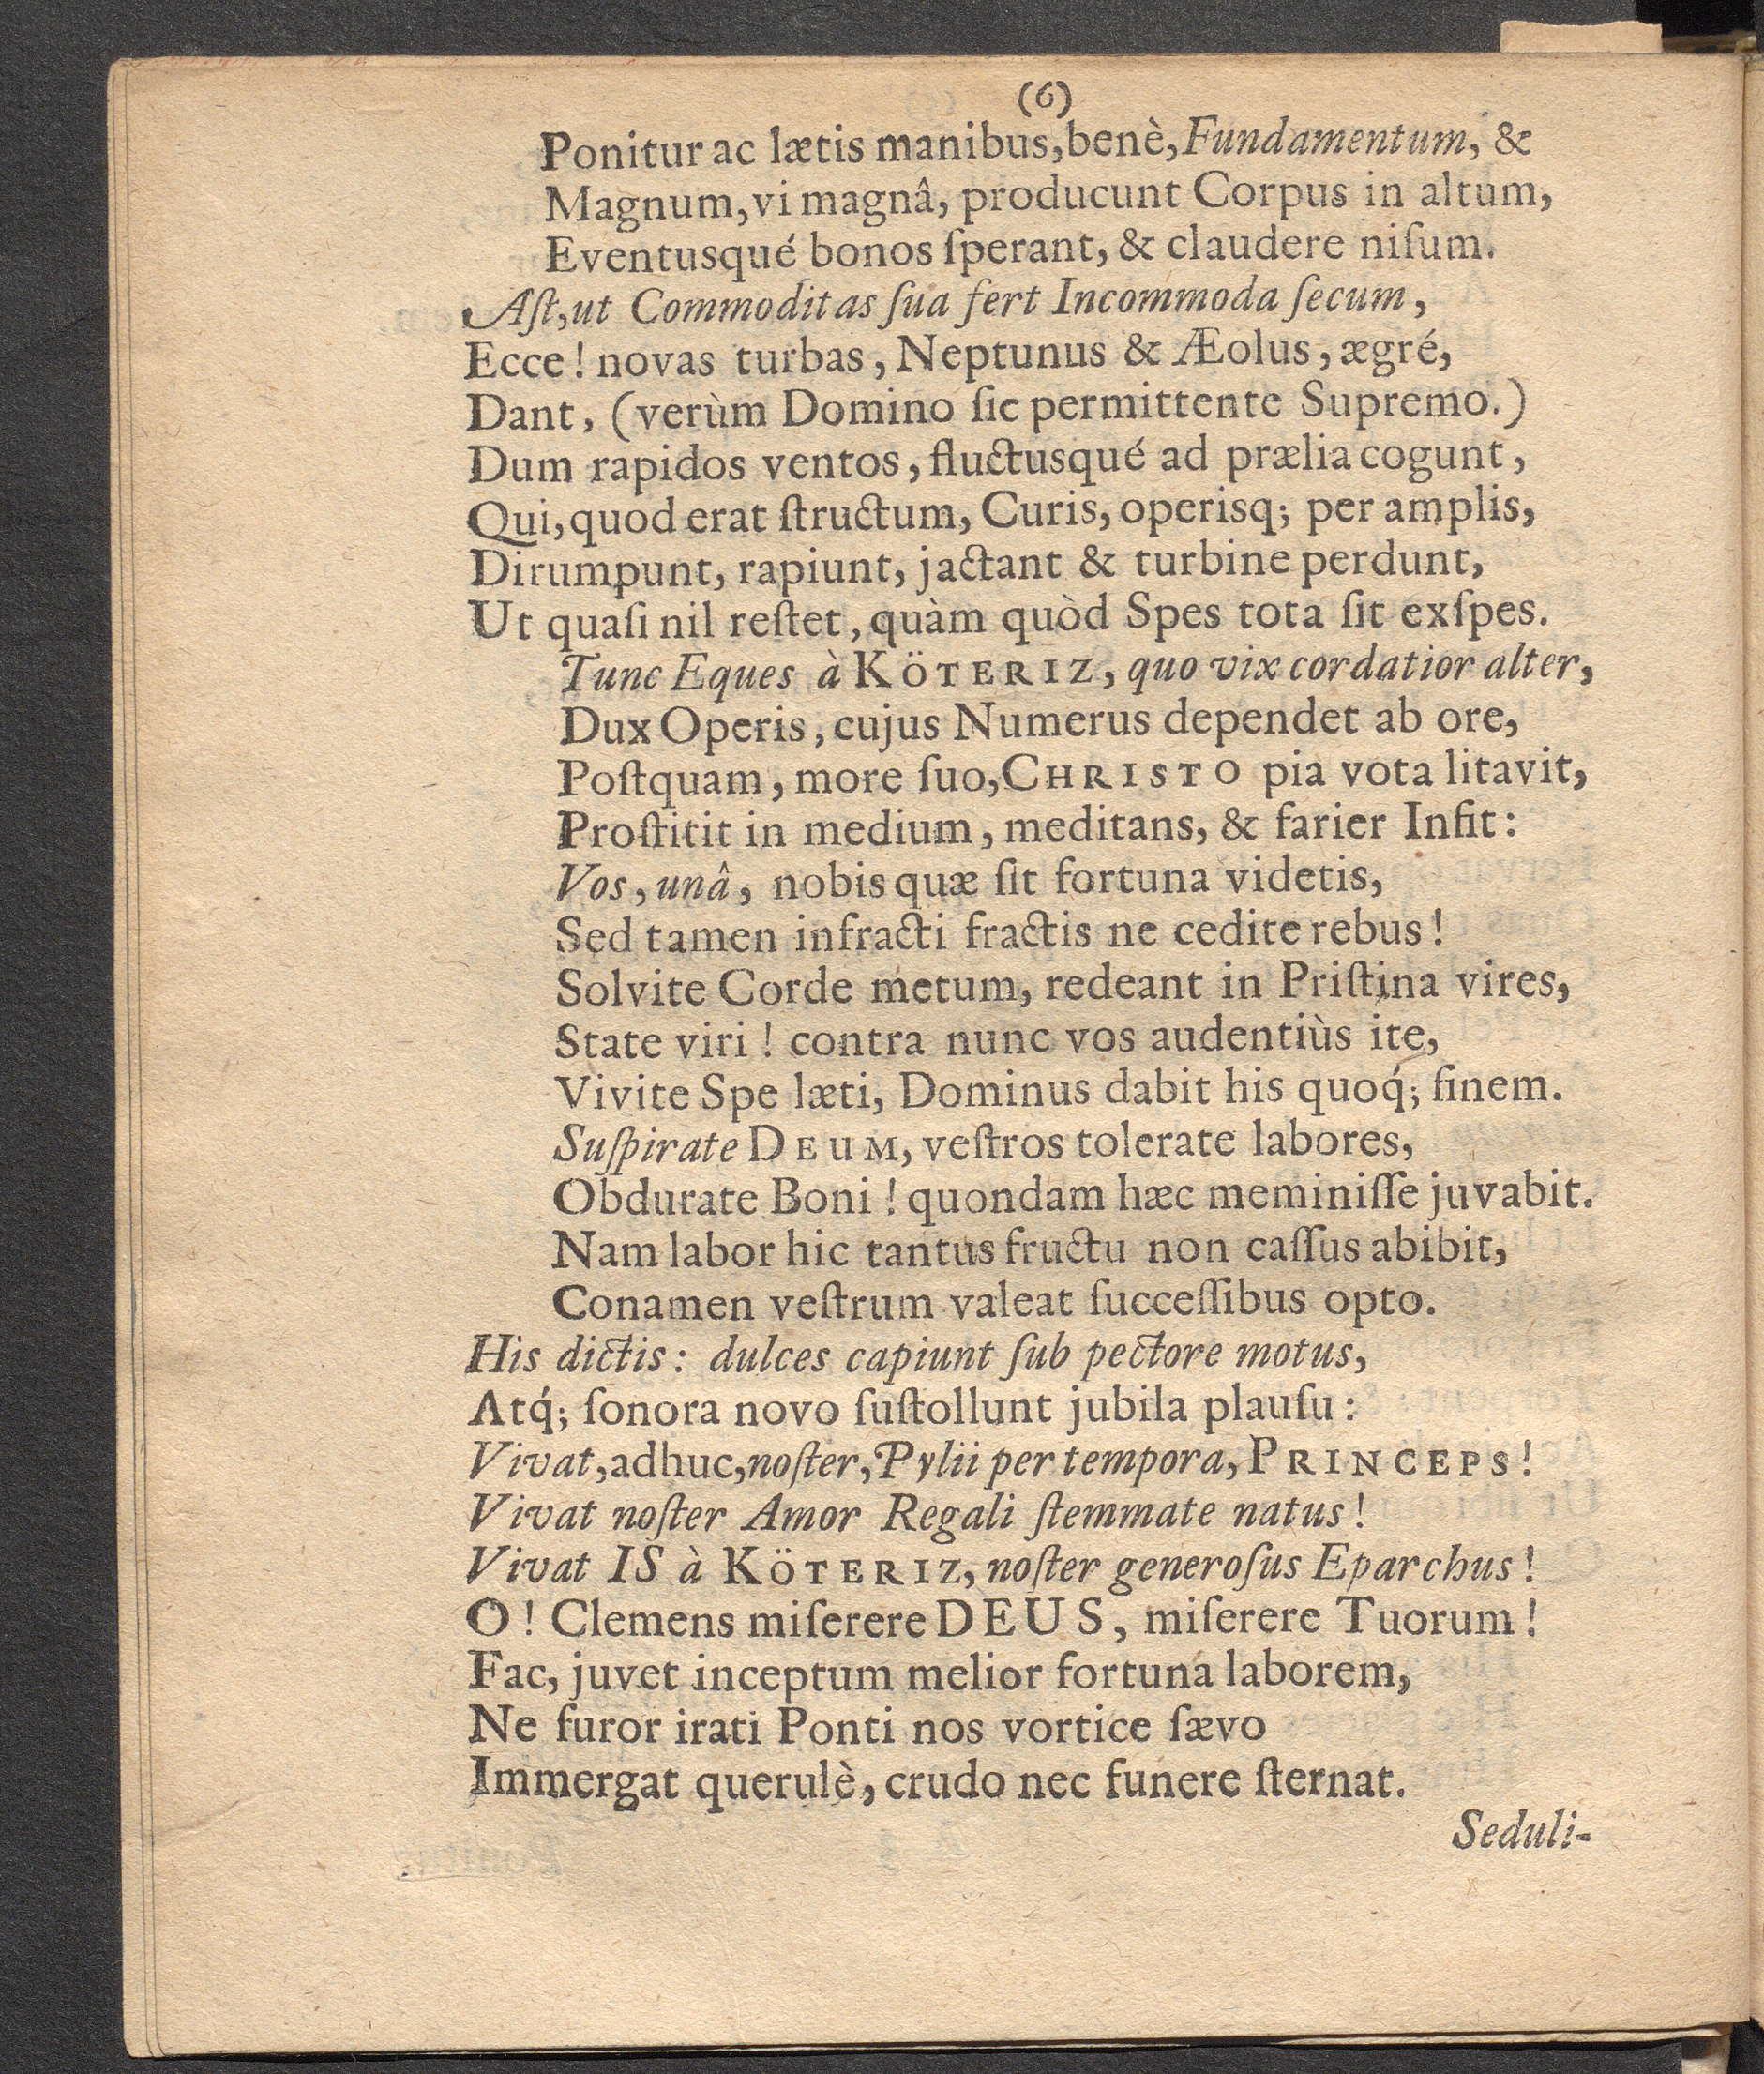 (6)
Ponitur ac lætis manibus, benè, Fundamentum, &
Magnum, vi magnâ, producunt Corpus in altum,
Eventusqué bonos ſperant, & claudere niſum.
Aſt, ut Commoditas ſua fert Incommoda ſecum,
Ecce! novas turbas, Neptunus & Æolus, ægré,
Dant, (verùm Domino ſic permittente Supremo.)
Dum rapidos ventos, fluctusqué ad prælia cogunt,
Qui, quod erat ſtructum, Curis, operisq; per amplis,
Dirumpunt, rapiunt, jactant & turbine perdunt,
Ut quaſi nil reſtet, quàm quòd Spes tota ſit exſpes.
Tunc Eques à KÖTERIZ, quo vix cordatior alter,
Dux Operis, cujus Numerus dependet ab ore,
Poſtquam, more ſuo, CHRISTO pia vota litavit,
Proſtitit in medium, meditans, & farier Infit:
Vos, unâ, nobis quæ ſit fortuna videtis,
Sed tamen infracti fractis ne cedite rebus!
Solvite Corde metum, redeant in Priſtina vires,
State viri! contra nunc vos audentiùs ite,
Vivite Spe læti, Dominus dabit his quoq́; finem.
Suſpirate DEUM, veſtros tolerate labores,
Obdurate Boni! quondam hæc meminiſſe juvabit.
Nam labor hic tantus fructu non caſſus abibit,
Conamen veſtrum valeat ſucceſſibus opto.
His dictis: dulces capiunt ſub pectore motus,
Atq́; ſonora novo ſuſtollunt jubila plauſu:
Vivat, adhuc, noſter, Pylii per tempora, PRINCEPS!
Vivat noſter Amor Regali ſtemmate natus!
Vivat IS à KÖTERIZ, noſter generoſus Eparchus!
O! Clemens miſerere DEUS, miſerere Tuorum!
Fac, juvet inceptum melior fortuna laborem,
Ne furor irati Ponti nos vortice ſævo
Immergat querulè, crudo nec funere ſternat.
Seduli-